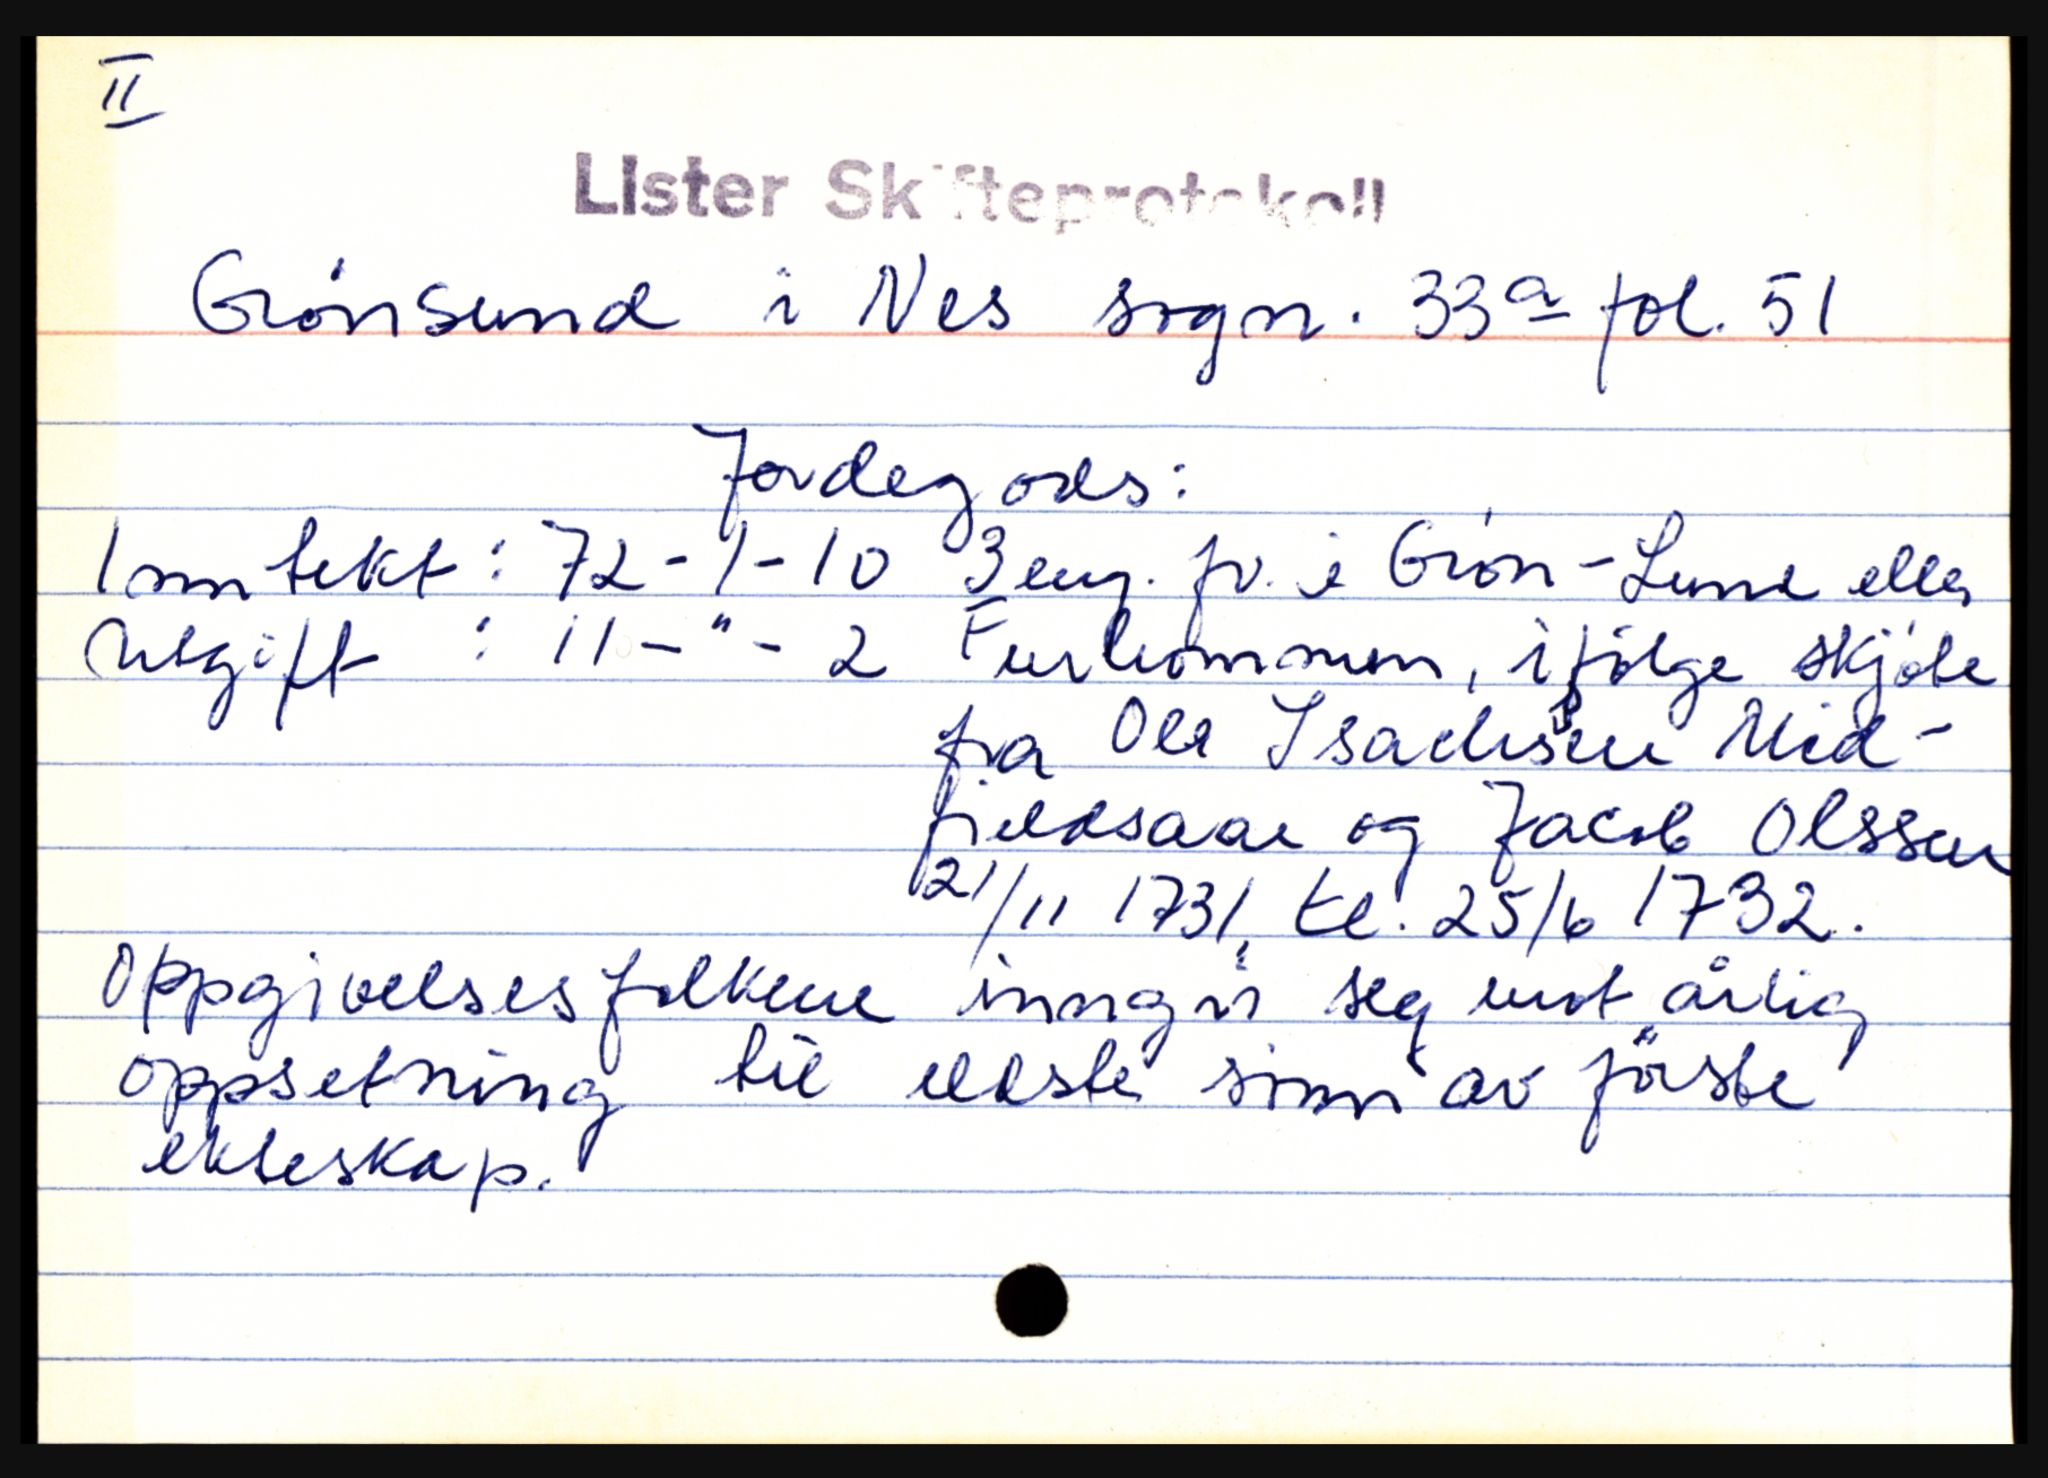 II
Lister Skifteprotokoll
Grönsund i Nes sogn. 33a fol. 51
Jordegods:
Inntekt : 72-1-10 3 eng. fv. i Grön-Sund eller
Utgift : 11-"-2 Furholmmen, ifölge skjöte
fra Ole Isachsen Mid-
fieldsaae og Jacob Olssen
21/11 1731, tl. 25/6 1732.
Oppgivelsesfolkene inngir seg mot årlig
oppsetning til eldste sönn av förste
ekteskap.